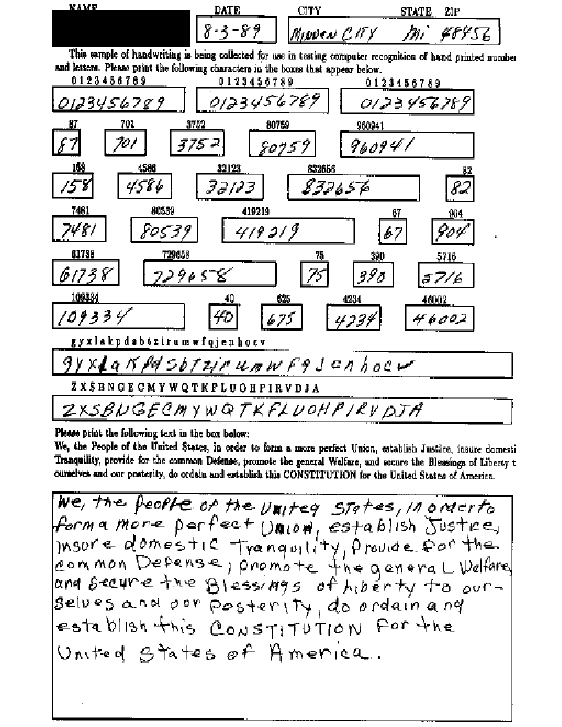 NAME DATE CITY STATE ZIP
8-3-89 MINDEN CITY Mi 48456
This sample of handwriting is being collected for use in testing computer recognition of hand printed number
and letters. Please print the following characters in the boxes that appear below.
0123456789 0123456789 0123456789
0123456789 0123456789 0123456789
87 701 3752 80759 960941
87 701 3752 80759 960941
158 4586 32123 832656 82
158 4586 32123 832656 82
7481 80539 419219 67 904
7481 80539 419219 67 904
61738 729658 75 390 5716
61738 729658 75 390 5716
109334 40 675 4234 46002
109334 40 675 4234 46002
gyxlakpdsbtzirumwfqjenhocv
gyxlakpdsbtzirumwfqJenhocv
ZXSBNGECMYWQTKFLUOHPIRVDJA
ZXSBNGECMYWQTKFLUOHPIRVDJA
Please print the following text in the box below:
We, the People of the United States, in order to form a more perfect Union, establish Justice, insure domesti
Tranquility, provide for the common Defense, promote the general Welfare, and secure the Blessings of Liberty t
ourselves and our posterity, do ordain and establish this CONSTITUTION for the United States of America.
We, the People of the United States, in order to
form a more perfect Union, establish Justice,
insure domestic Tranquility, Provide for the
common Defense, promote the general Welfare,
and secure the Blessings of Liberty to our-
selves and our posterity, do ordain and
establish this CONSTITUTION for the
United States of America.